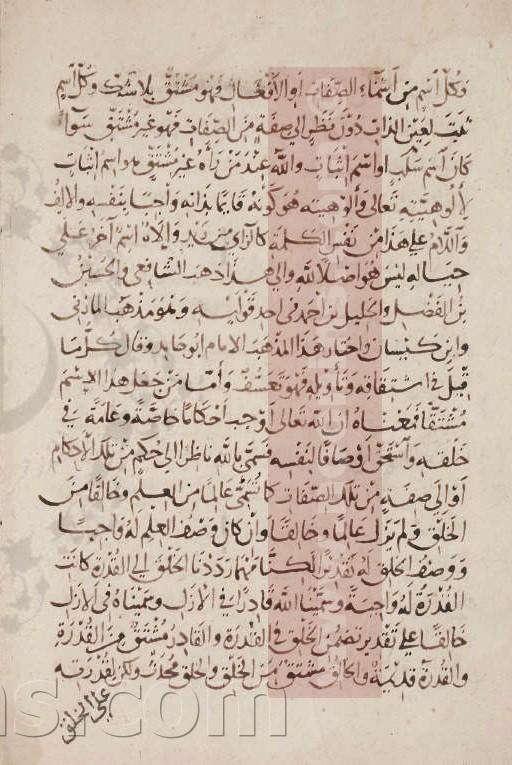 وكل اسم من أسماء الصفات أو الأفعال فهو مشتق بلا شك وكل اسم
ثبت لعين الذات دون نظر إلى صفة من الصفات فهو غير مشتق سواء
كان اسم سلب أو اسم إثبات والله عند من رآه غير مشتق هو اسم إثبات
لألوهيته تعالى وألوهيته هو كونه قائما بذاته واجبا بنفسه والألف
واللام على هذا من نفس الكلمة كالزاي من زيد والإلاه اسم آخر على
حياله ليس هو أصلا لله وإلى هذا ذهب الشافعي والحسين
بن الفضل والخليل بن أحمد في أحد قوليه وهو مذهب المازني
وابن كيسان واختار هذا المذهب الإمام أبو حامد وقال كل ما
قيل في اشتقاقه وتأويله فهو تعسف وأما من جعل هذا الاسم
مشتقا فمعناه أن الله تعالى أوجب أحكاما خاصة وعامة في
خلقه واستحق أوصافا لنفسه فسمي بالله ناظرا إلى حكم من تلك الأحكام
أو إلى صفة من تلك الصفات كما سمي عالما من العلم وخالقا من
الخلق ولم يزل عالما وخالقا وإن كان وصف العلم له واجبا
ووصف الخلق له تقديرا لكنا مهما رددنا الخلق إلى القدرة كانت
القدرة له واجبة وسمينا الله قادرا في الأزل وسميناه في الأزل
خالقا على تقدير تضمن الخلق في القدرة والقادر مشتق من القدرة
والقدرة قديمة والخالق مشتق من الخلق والخلق محدث ولكن لقدرته
على الخلق
ns.com